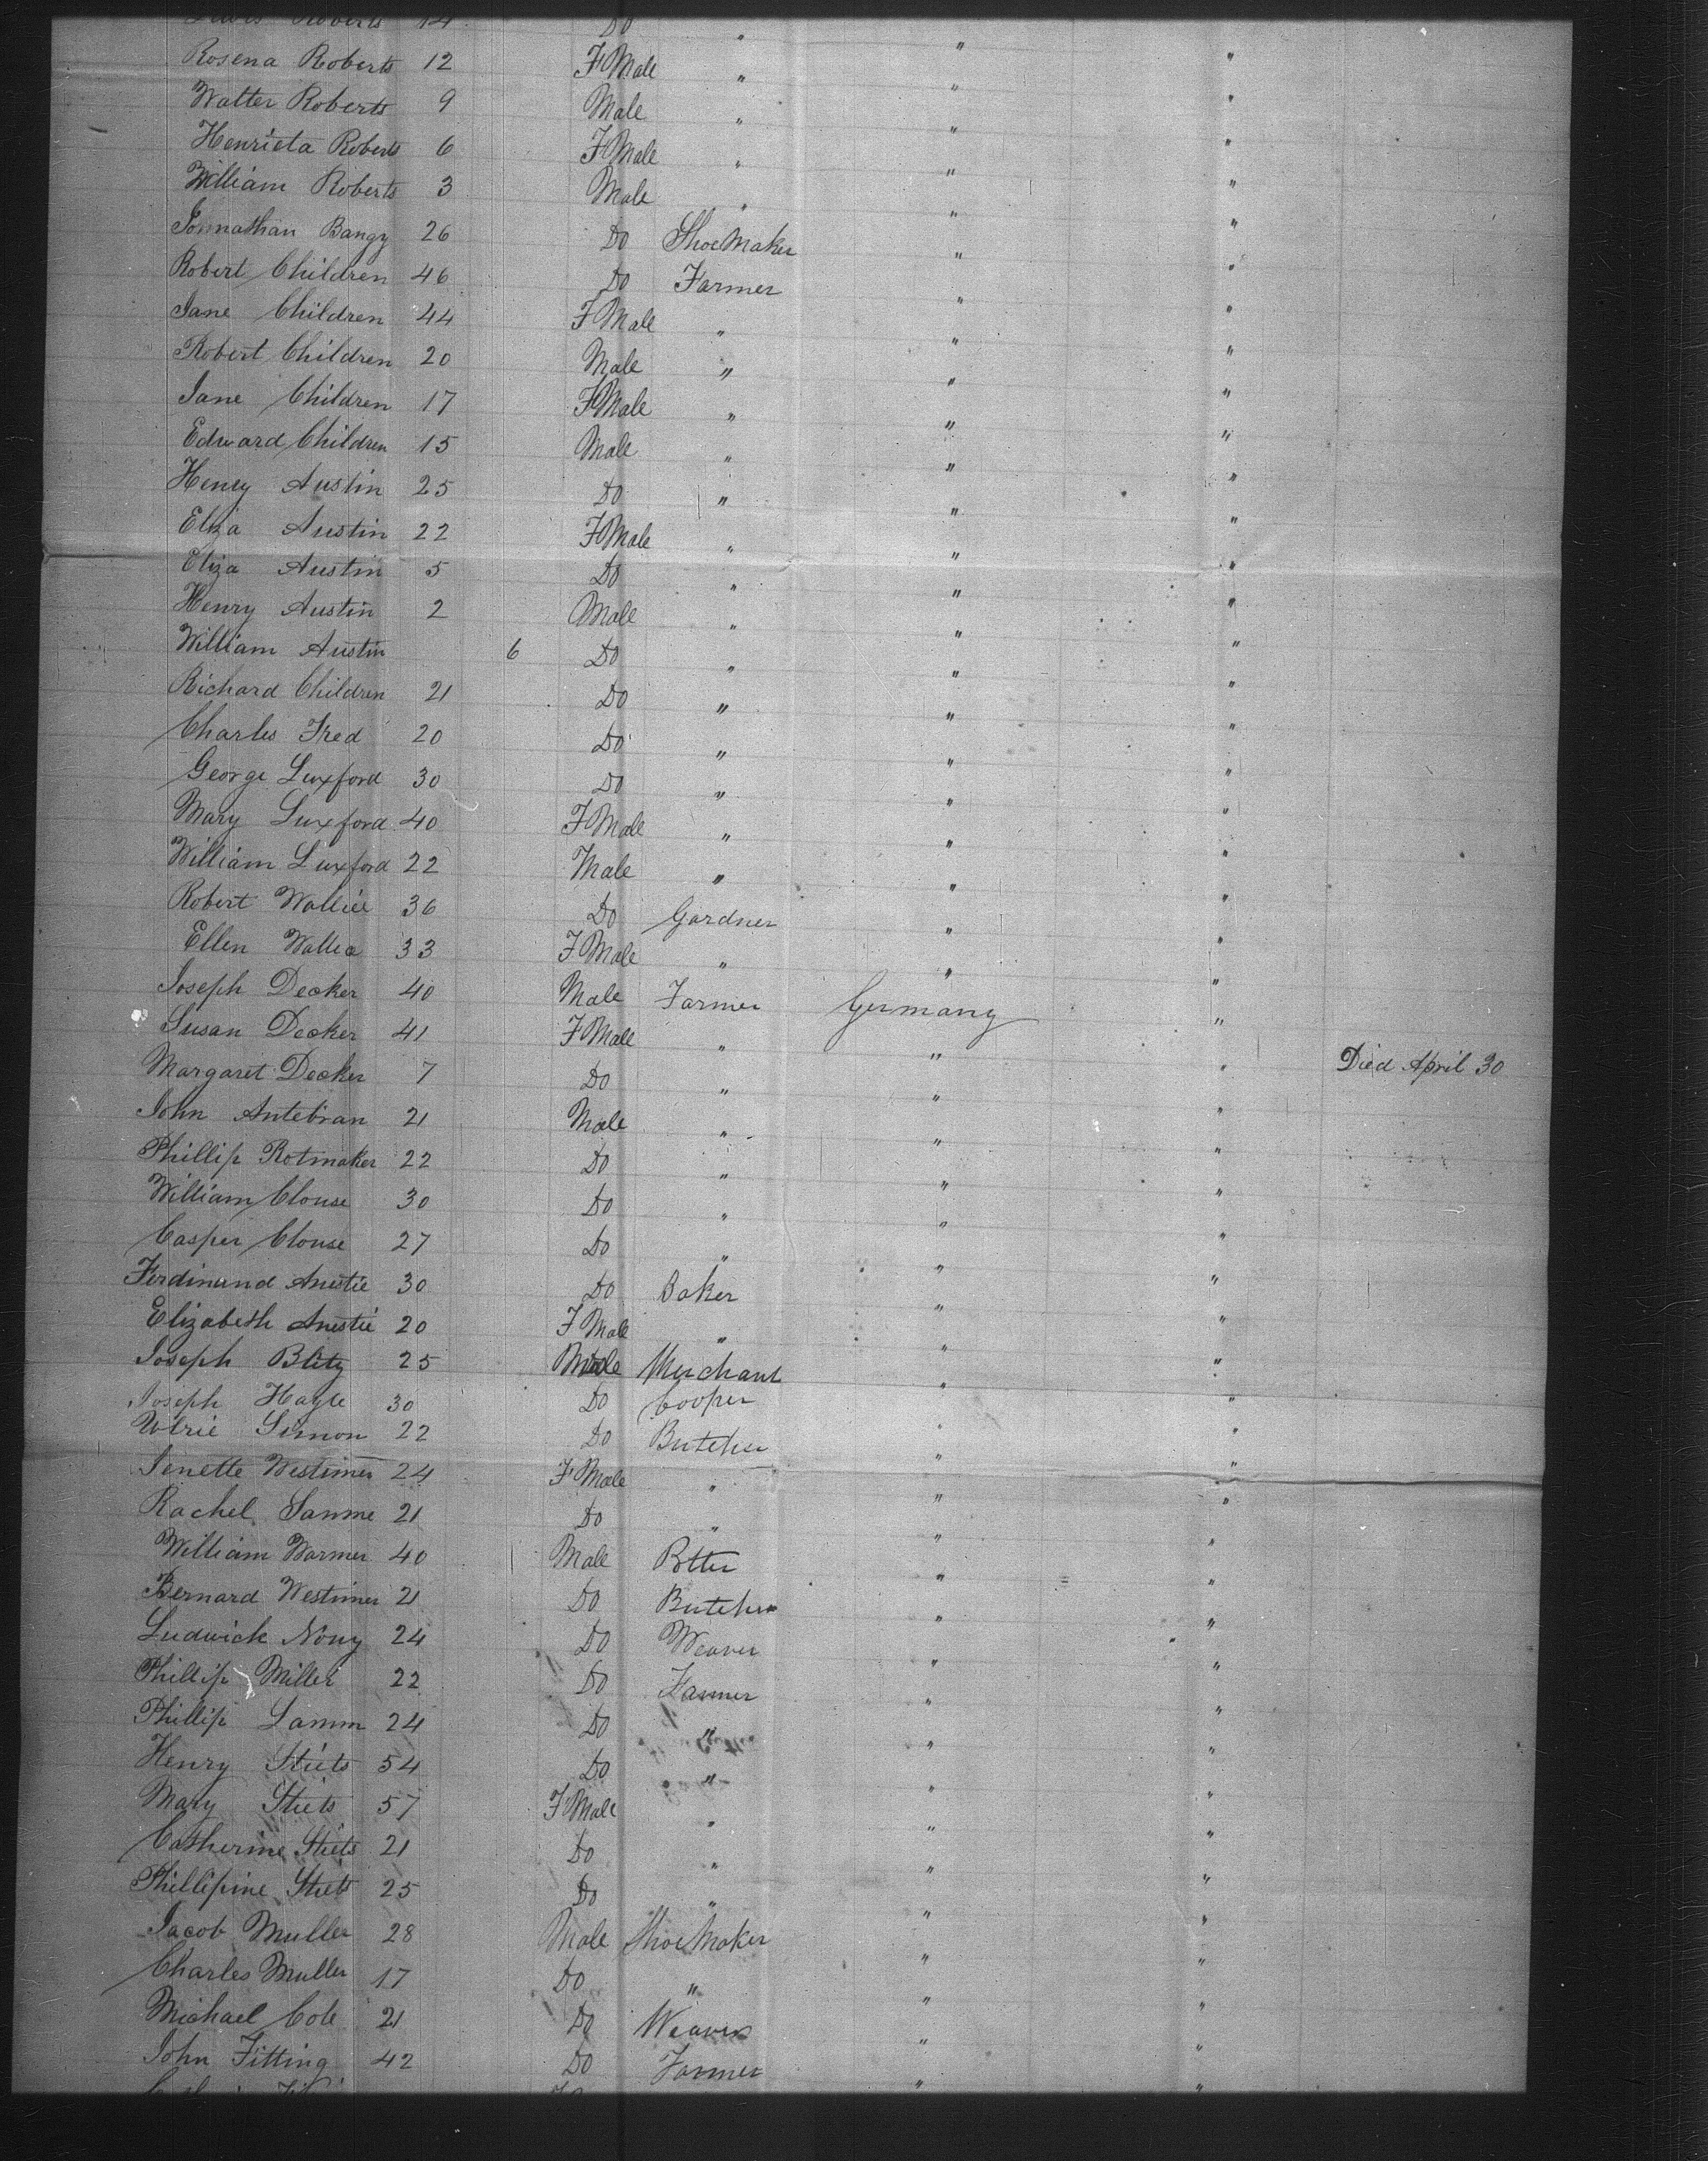 Lewis Roberts 14 Do " " "
Rosena Roberts 12 F Male " " "
Walter Roberts 9 Male " " "
Henrieta Roberts 6 F Male " " "
William Roberts 3 Male " " "
Jonnathan Bangy 26 Do Shoe Maker " "
Robert Children 46 Do Farmer " "
Jane Children 44 F Male " " "
Robert Children 20 Male " " "
Jane Children 17 F Male " " "
Edward Children 15 Male " " "
Henry Austin 25 Do " " "
Eliza Austin 22 F Male " " "
Eliza Austin 5 Do " " "
Henry Austin 2 Male " " "
William Austin 6 Do " " "
Richard Children 21 Do " " "
Charles Fred 20 Do " " "
George Luxford 30 Do " " "
Mary Luxford 40 F Male " " "
William Luxford 22 Male " " "
Robert Wallice 36 Do Gardner " "
Ellen Wallica 33 F Male " " "
Joseph Decker 40 Male Farmer Germany "
Susan Decker 41 F Male " " "
Margaret Decker 7 Do " " " Died April 30
John Antebran 21 Male " " "
Phillip Rotmaker 22 Do " " "
William Clouse 30 Do " " "
Casper Clouse 27 Do " " "
Ferdinand Anestie 30 Do Baker " "
Elizabeth Anestie 20 F Male " " "
Joseph Blitz 25 Male Merchant " "
Joseph Hagle 30 Do Cooper " "
Simon 22 Do Butcher " "
Jenette Westimer 24 F Male " " "
Rachel Samme 21 Do " " "
William Warmer 40 Male Potter " "
Bernard Westimer 21 Do Butcher " "
Ludwick Nony 24 Do Weaver " "
Phillip Miller 22 Do Farmer " "
Phillip Lamm 24 Do " " "
Henry Stiets 54 Do " " "
Mary Stiets 57 F Male " " "
Catherine Stiets 21 Do " " "
Phillipine Stiets 25 Do " " "
Jacob Muller 28 Male Shoe Maker " "
Charles Muller 17 Do " " "
Michael Cole 21 Do Weaver " "
John Fitting 42 Do Farmer " "